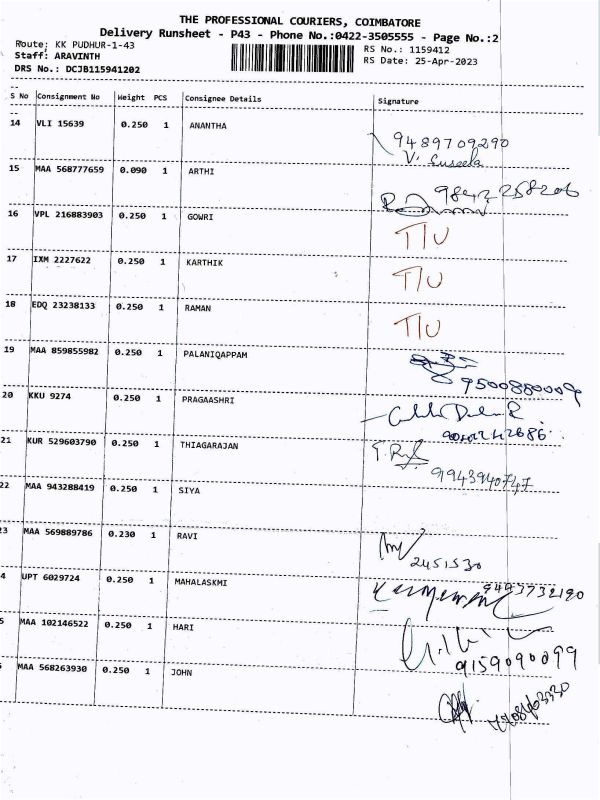 THE PROFESSIONAL COURIERS, COIMBATORE
Delivery Runsheet - P43 - Phone No.:0422-3505555 - Page No.:2
Route: KK PUDHUR-1-43
RS No.: 1159412
Staff: ARAVINTH
RS Date: 25-Apr-2023
DRS No.: DCJB115941202
S No Consignment No Weight PCS Consignee Details Signature
14 VLI 15639 0.250 1 ANANTHA
9489709290
V. Suseela
15 MAA 568777659 0.090 1 ARTHI
9842258206
16 VPL 216883903 0.250 1 GOWRI
T/U
17 IXM 2227622 0.250 1 KARTHIK
T/U
18 EDQ 23238133 0.250 1 RAMAN
T/U
19 MAA 859855982 0.250 1 PALANIQAPPAM
9500880009
20 KKU 9274 0.250 1 PRAGAASHRI
21 KUR 529603790 0.250 1 THIAGARAJAN
9943940747
22 MAA 943288419 0.250 1 SIYA
23 MAA 569889786 0.230 1 RAVI
2451530
4 UPT 6029724 0.250 1 MAHALASKMI
9493732190
5 MAA 102146522 0.250 1 HARI
9159090099
MAA 568263930 0.250 1 JOHN